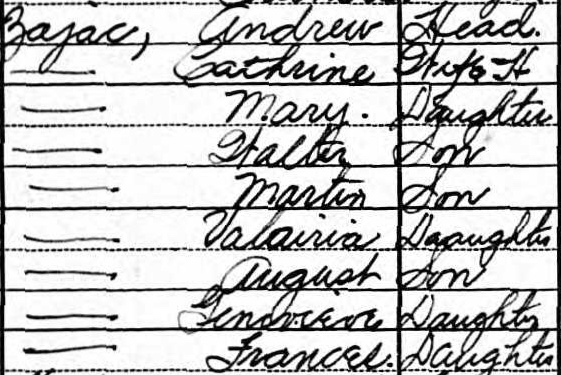 Zajac, Andrew Head.
— Cathrine Wife H
— Mary. Daughter
— Walter Son
— Martin Son
— Valairia Daaughter
— August Son
— Genavieve Daughter
— Frances. Daughter